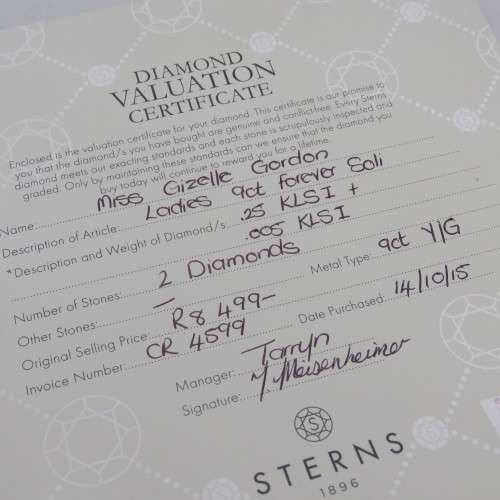 DIAMOND
VALUATION
CERTIFICATE
Enclosed is the valuation certificate for your diamond. This certificate is our promise to
you that the diamond/s you have bought are genuine and conflict-free. Every Sterns
diamond meets our exacting standards and each stone is scrupulously inspected and
graded. Only by maintaining these standards can we ensure that the diamond you
buy today will continue to reward you for a lifetime.
Name: Miss Gizelle Gordon
Description of Article: Ladies 9ct forever Soli
*Description and Weight of Diamond/s: .25 KLSI +
.005 KLSI
Number of Stones: 2 Diamonds
Other Stones: — Metal Type: 9ct Y/G
Original Selling Price: R8 499-
Invoice Number: CR 4599 Date Purchased: 14/10/15
Manager: Tarryn
Signature: Meisenheimer
S
STERNS
1896